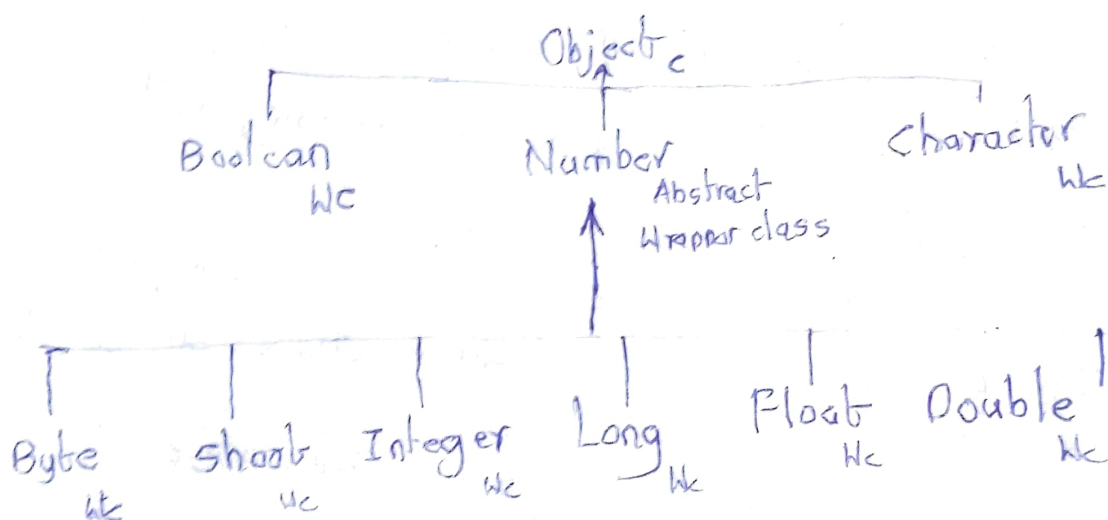 Object c
Boolean
WC
Number
Abstract
Wrapper class
Character
Wc
Byte
Wc
Short
Wc
Integer
Wc
Long
Wc
Float
Wc
Double
Wc